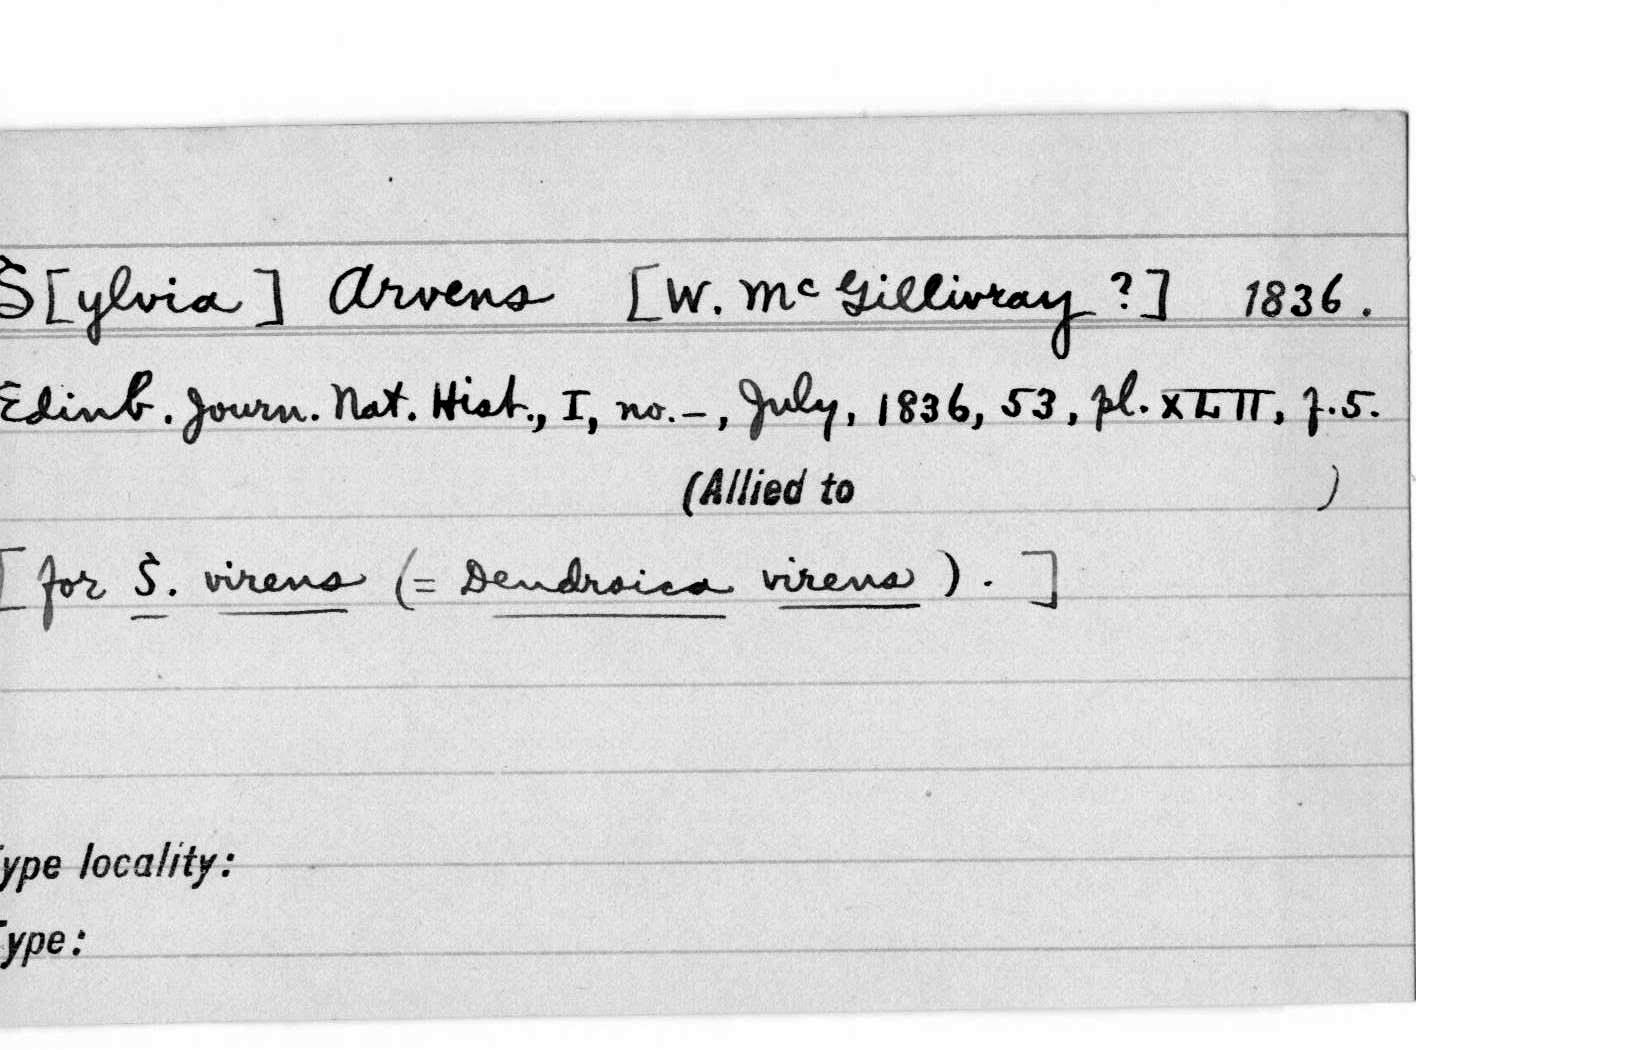 S[ylvia] Arvens [W. McGillivray ?] 1836.
Edinb. Journ. Nat. Hist., I, no. –, July, 1836, 53, pl. XLII, f.5.
(Allied to )
[for S. virens (= Dendroica virens).]
ype locality:
ype: